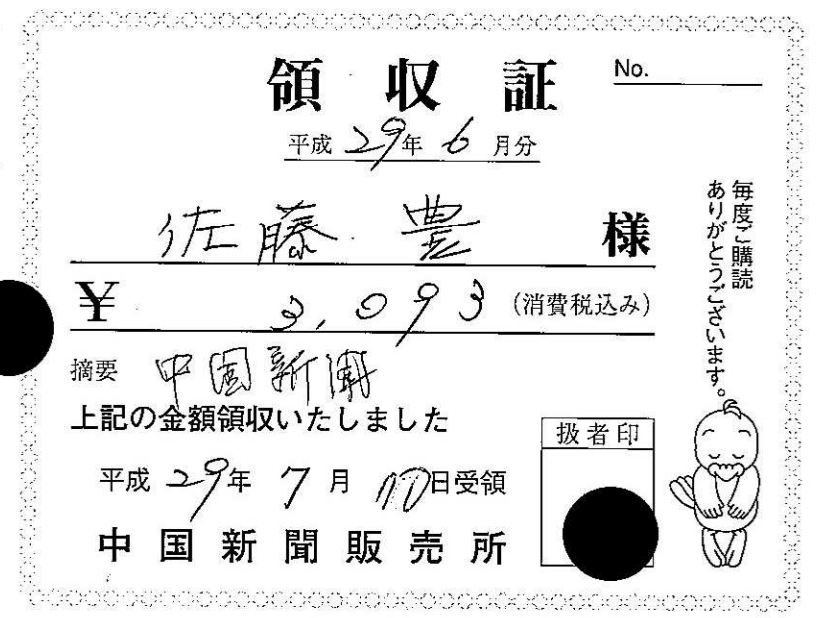 領収証
No.
平成 29年 6 月分
佐藤 豊 様
¥ 3,093 (消費税込み)
摘要 中国新聞
上記の金額領収いたしました
平成 29年 7 月 日受領
中国新聞販売所
扱者印
毎度ご購読
ありがとうございます。